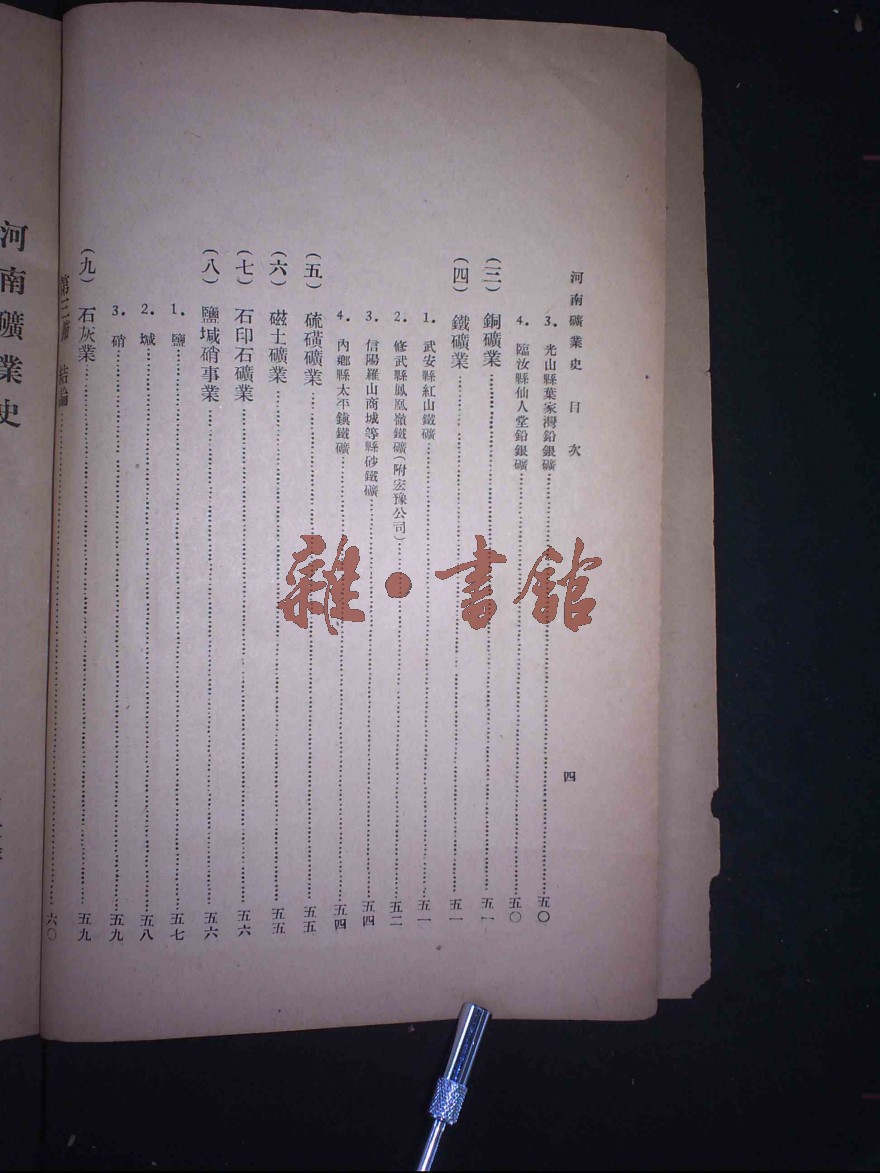 河南礦業史 目次 四
3. 光山縣葉家灣鉛銀礦……五〇
4. 臨汝縣仙人堂鉛銀礦……五〇
(三) 銅礦業……五一
(四) 鐵礦業……五一
1. 武安縣紅山鐵礦……五一
2. 修武縣鳳凰嶺鐵礦(附宏豫公司)……五二
3. 信陽羅山商城等縣砂鐵礦……五四
4. 內鄉縣太平鎮鐵礦……五四
(五) 硫磺礦業……五五
(六) 磁土礦業……五五
(七) 石印石礦業……五六
(八) 鹽堿硝事業……五六
1. 鹽……五七
2. 城……五八
3. 硝……五九
(九) 石灰業……五九
第三編 結論……六〇
河南礦業史
雜·書館